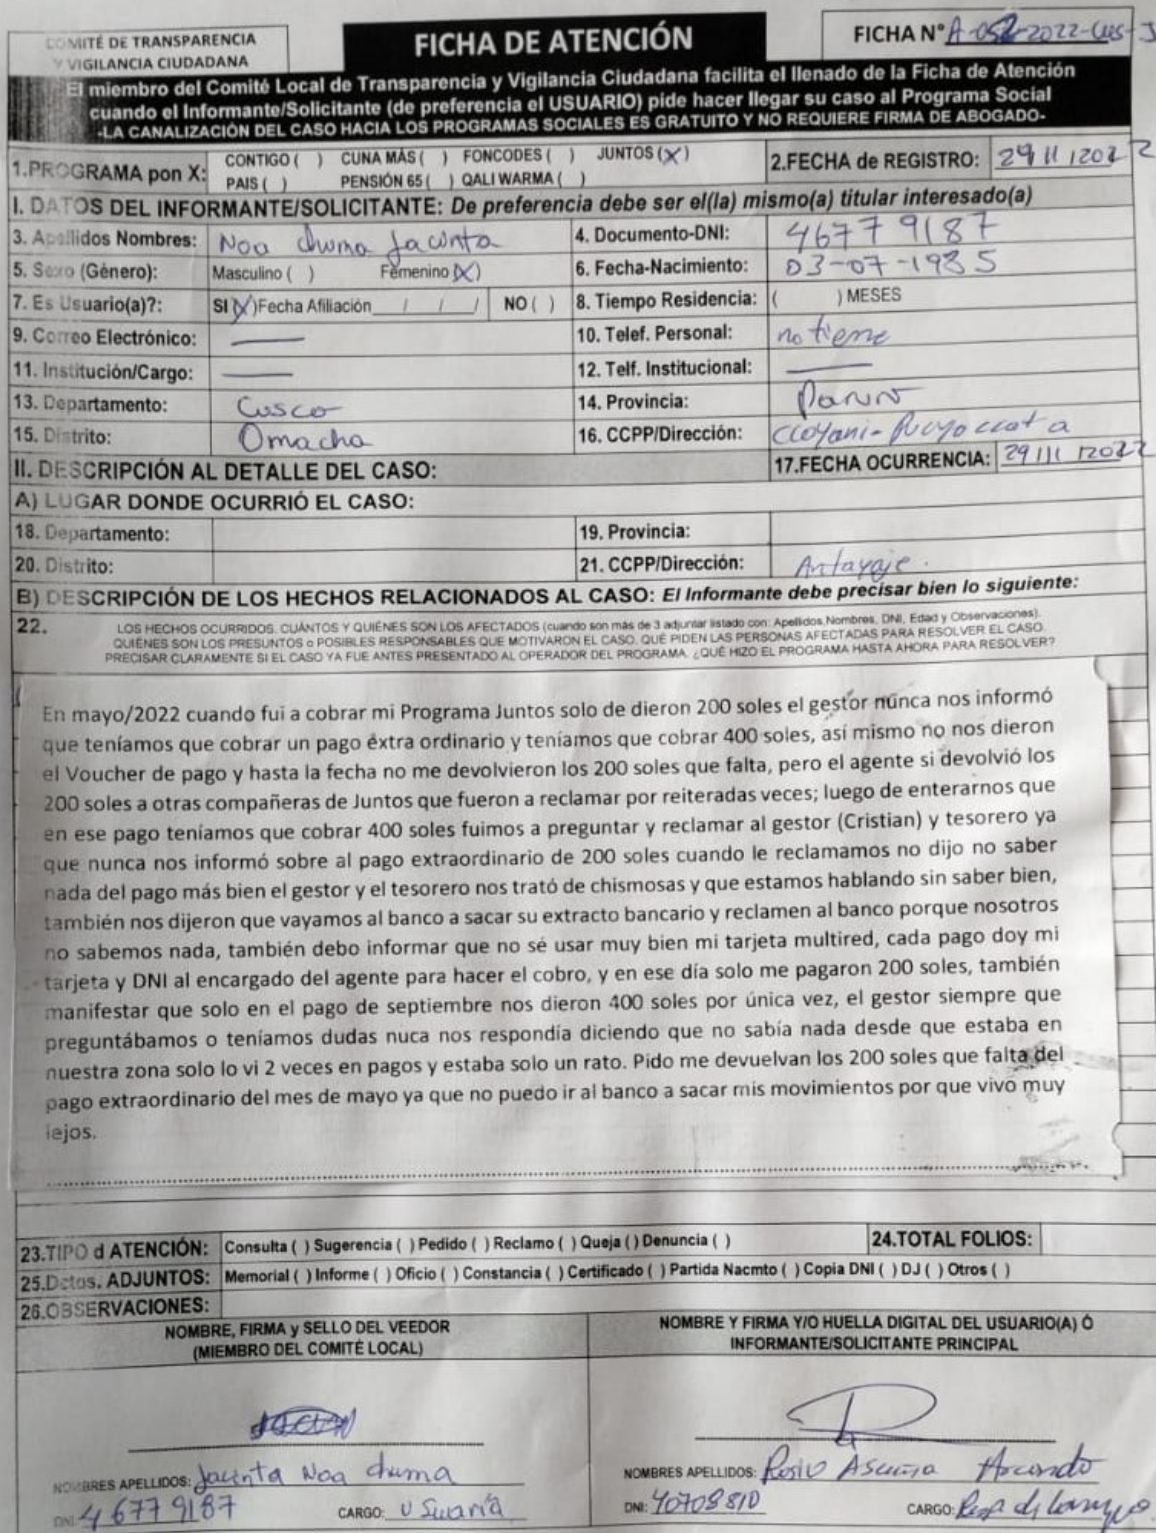 COMITÉ DE TRANSPARENCIA
Y VIGILANCIA CIUDADANA
FICHA DE ATENCIÓN
FICHA N° A-052-2022-CUS-J
El miembro del Comité Local de Transparencia y Vigilancia Ciudadana facilita el llenado de la Ficha de Atención
cuando el Informante/Solicitante (de preferencia el USUARIO) pide hacer llegar su caso al Programa Social
-LA CANALIZACIÓN DEL CASO HACIA LOS PROGRAMAS SOCIALES ES GRATUITO Y NO REQUIERE FIRMA DE ABOGADO-
1.PROGRAMA pon X: CONTIGO ( ) CUNA MÁS ( ) FONCODES ( ) JUNTOS (X)
PAIS ( ) PENSIÓN 65 ( ) QALI WARMA ( )
2.FECHA de REGISTRO: 29/11/2022
I. DATOS DEL INFORMANTE/SOLICITANTE: De preferencia debe ser el(la) mismo(a) titular interesado(a)
3. Apellidos Nombres: Noa chuma Jacinta 4. Documento-DNI: 46779187
5. Sexo (Género): Masculino ( ) Femenino (X) 6. Fecha-Nacimiento: 03-07-1985
7. Es Usuario(a)?: SI (X) Fecha Afiliación / / / NO ( ) 8. Tiempo Residencia: ( ) MESES
9. Correo Electrónico: — 10. Telef. Personal: no tiene
11. Institución/Cargo: — 12. Telf. Institucional: —
13. Departamento: Cusco 14. Provincia: Paruro
15. Distrito: Omacha 16. CCPP/Dirección: Ccoyani-
II. DESCRIPCIÓN AL DETALLE DEL CASO: 17.FECHA OCURRENCIA: 29/11/2022
A) LUGAR DONDE OCURRIÓ EL CASO:
18. Departamento: 19. Provincia:
20. Distrito: 21. CCPP/Dirección: Antayaje.
B) DESCRIPCIÓN DE LOS HECHOS RELACIONADOS AL CASO: El Informante debe precisar bien lo siguiente:
22. LOS HECHOS OCURRIDOS. CUÁNTOS Y QUIÉNES SON LOS AFECTADOS (cuando son más de 3 adjuntar listado con: Apellidos,Nombres, DNI, Edad y Observaciones).
QUIÉNES SON LOS PRESUNTOS o POSIBLES RESPONSABLES QUE MOTIVARON EL CASO. QUÉ PIDEN LAS PERSONAS AFECTADAS PARA RESOLVER EL CASO.
PRECISAR CLARAMENTE SI EL CASO YA FUE ANTES PRESENTADO AL OPERADOR DEL PROGRAMA. ¿QUÉ HIZO EL PROGRAMA HASTA AHORA PARA RESOLVER?
En mayo/2022 cuando fui a cobrar mi Programa Juntos solo de dieron 200 soles el gestor nunca nos informó
que teníamos que cobrar un pago éxtra ordinario y teníamos que cobrar 400 soles, así mismo no nos dieron
el Voucher de pago y hasta la fecha no me devolvieron los 200 soles que falta, pero el agente si devolvió los
200 soles a otras compañeras de Juntos que fueron a reclamar por reiteradas veces; luego de enterarnos que
en ese pago teníamos que cobrar 400 soles fuimos a preguntar y reclamar al gestor (Cristian) y tesorero ya
que nunca nos informó sobre al pago extraordinario de 200 soles cuando le reclamamos no dijo no saber
nada del pago más bien el gestor y el tesorero nos trató de chismosas y que estamos hablando sin saber bien,
también nos dijeron que vayamos al banco a sacar su extracto bancario y reclamen al banco porque nosotros
no sabemos nada, también debo informar que no sé usar muy bien mi tarjeta multired, cada pago doy mi
tarjeta y DNI al encargado del agente para hacer el cobro, y en ese día solo me pagaron 200 soles, también
manifestar que solo en el pago de septiembre nos dieron 400 soles por única vez, el gestor siempre que
preguntábamos o teníamos dudas nuca nos respondía diciendo que no sabía nada desde que estaba en
nuestra zona solo lo vi 2 veces en pagos y estaba solo un rato. Pido me devuelvan los 200 soles que falta del
pago extraordinario del mes de mayo ya que no puedo ir al banco a sacar mis movimientos por que vivo muy
lejos.
23.TIPO d ATENCIÓN: Consulta ( ) Sugerencia ( ) Pedido ( ) Reclamo ( ) Queja ( ) Denuncia ( ) 24.TOTAL FOLIOS:
25.Dctos. ADJUNTOS: Memorial ( ) Informe ( ) Oficio ( ) Constancia ( ) Certificado ( ) Partida Nacmto ( ) Copia DNI ( ) DJ ( ) Otros ( )
26.OBSERVACIONES:
NOMBRE, FIRMA y SELLO DEL VEEDOR
(MIEMBRO DEL COMITÉ LOCAL)
NOMBRE Y FIRMA Y/O HUELLA DIGITAL DEL USUARIO(A) Ó
INFORMANTE/SOLICITANTE PRINCIPAL
NOMBRES APELLIDOS: Jacinta Noa chuma
DNI: 46779187 CARGO: Usuaria
NOMBRES APELLIDOS: Rosio Ascuña
DNI: 40708810 CARGO: